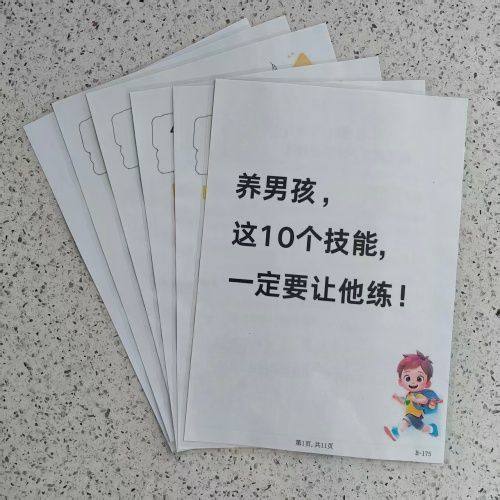 养男孩，
这10个技能，
一定要让他练！
第1页,共11页
B-175